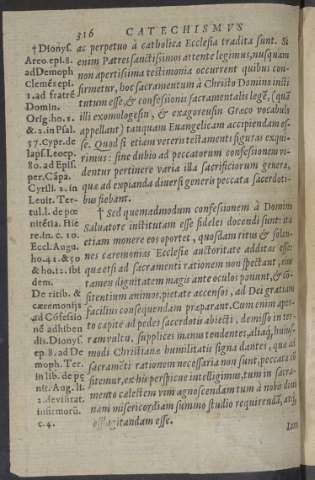 316
CATECHISMVS
† Dionys.
Areo.epi.8.
ad Demoph
Clemēs epi.
1.ad fratrē
Domin.
Orig.ho.2.
& 2.in Psal.
37.Cypr.de
laps.Leo ep.
80.ad Epis.
per Cāpa.
Cyrill. 2. in
Leuit. Ter-
tul.l. de pœ
nitētia. Hie
re.in. c. 10.
Eccl. Augu.
ho.41.& 50
& ho.12.ibi
dem.
De ritib. &
cæremonijs
ad Cōfessio
nē adhiben
dis.Dionys.
ep.8. ad De
moph. Ter.
in lib. de pę
nit. Aug. li.
2.de visitat.
infirmorū.
c.4.
ac perpetuo à catholica Ecclesia tradita sunt. Si
enim Patres sanctissimos attente legimus, nusquam
non apertissima testimonia occurrent quibus con-
firmetur, hoc sacramentum à Christo Domino insti
tutum esse & confessionis sacramentalis legē, (quā
illi exomologesin, & exagoreusin Græco vocabulo
appellant) tanquam Euangelicam accipiendam es-
se. Quod si etiam veteris testamenti figuras exqui-
rimus: sine dubio ad peccatorum confessionem vi-
dentur pertinere varia illa sacrificiorum genera,
quæ ad expianda diuersi generis peccata sacerdoti-
bus fiebant.
† Sed quemadmodum confessionem à Domino
Saluatore institutam esse fideles docendi sunt: ita
etiam monere eos oportet, quosdam ritus & solen-
nes cæremonias Ecclesiæ auctoritate additas esse:
quæ etsi ad sacramenti rationem non spectant, eius
tamen dignitatem magis ante oculos ponunt, & cō-
fitentium animos, pietate accensos, ad Dei gratiam
facilius consequendam præparant. Cum enim aper-
to capite ad pedes sacerdotis abiecti, demisso in ter-
ram vultu, supplices manus tendentes, aliaq; huius-
modi Christianæ humilitatis signa dantes, quæ ad
sacramēti rationem necessaria non sunt, peccata cō
fitemur, ex his perspicue intelligimus, tum in sacra-
mento cælestem vim agnoscendam, tum à nobis diui
nam misericordiam summo studio requirendā, atq;
efflagitandam esse.